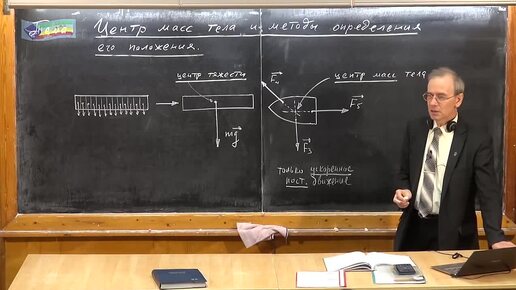 Центр масс тела и методы определения
его положения.
центр тяжести
центр масс тела
F₄
F₅
mg
F₃
только ускоренное
пост. движение